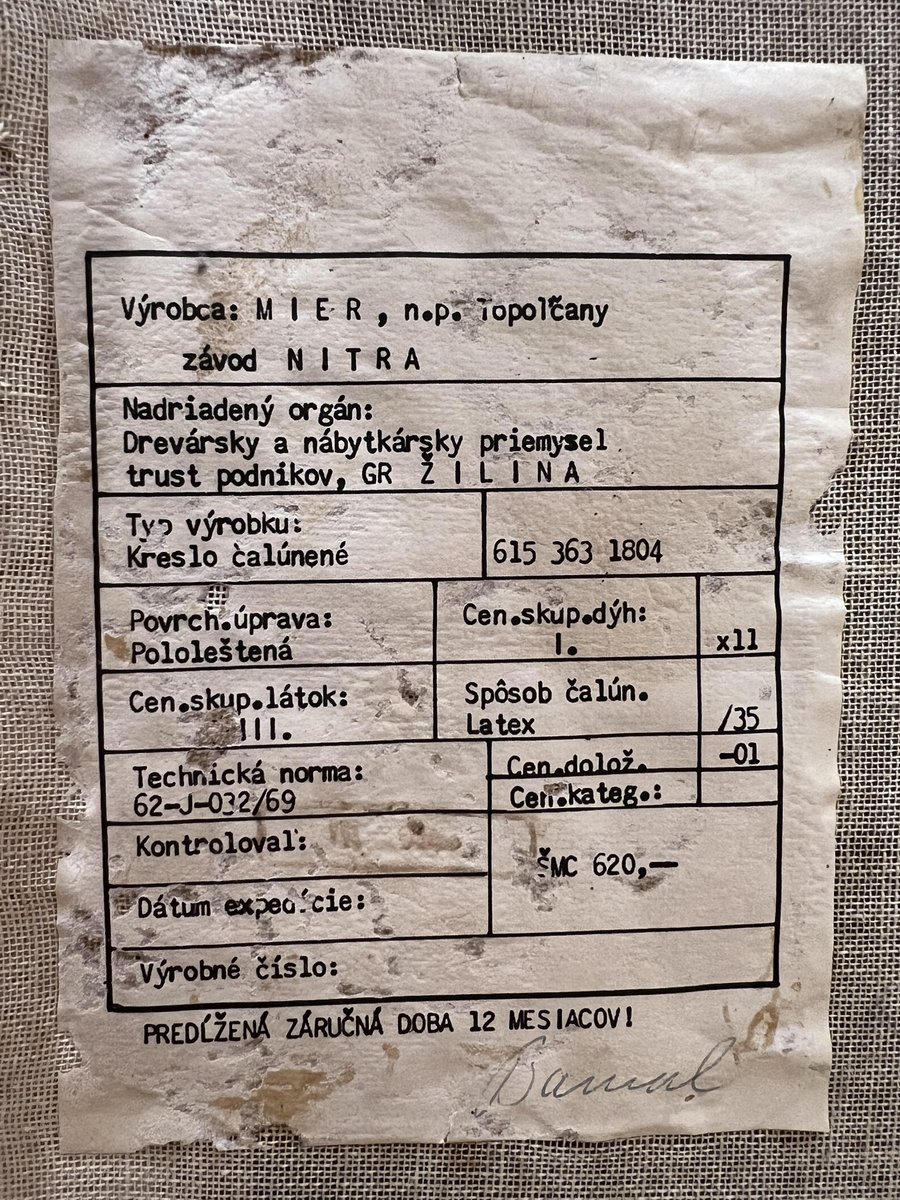 Výrobca: M I E R , n.p. Topoľčany
závod N I T R A
Nadriadený orgán:
Drevársky a nábytkársky priemysel
trust podnikov, GR Ž I L I N A
Typ výrobku:
Kreslo čalúnené
615 363 1804
Povrch.úprava:
Pololeštená
Cen.skup.dýh:
I.
x11
Cen.skup.látok:
III.
Spôsob čalún.
Latex
/35
Technická norma:
62-J-032/69
Cen.dolož.
-01
Cen.kateg.:
Kontroloval:
ŠMC 620,—
Dátum expedície:
Výrobné číslo:
PREDĹŽENÁ ZÁRUČNÁ DOBA 12 MESIACOV!